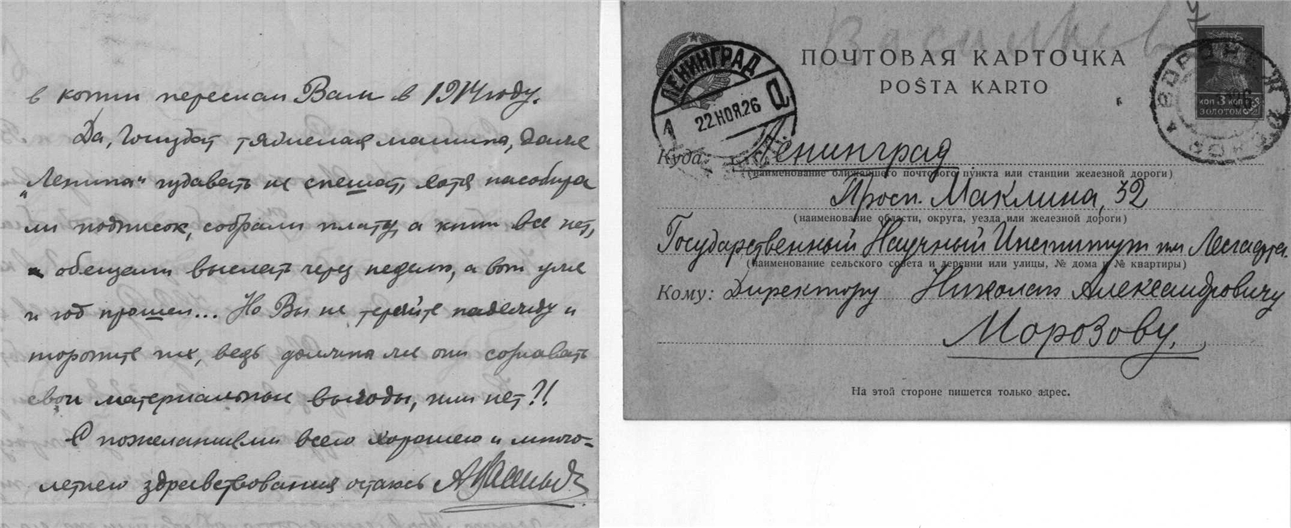 в копии переслал Вам в 1914 году.
Да, Госиздат тяжелая машина, даже
"Ленина" издавать не спешат, хотя насобира
ли подписок, собрали плату, а книг все нет,
обещали выслать через неделю, а вот уже
и год прошел... Но Вы не теряйте надежду и
торопите их, ведь должны ли они сознавать
свои материальные выгоды, или нет?!
С пожеланиями всего хорошего и много-
летнего здравствования остаюсь
Василев
ПОЧТОВАЯ КАРТОЧКА
POŜTA KARTO
ЛЕНИНГРАД
22 НОЯ. 26
1
ВОРОНЕЖ
КОП 3 КОП
ЗОЛОТОМ
Куда: Ленинград
(наименование ближайшего почтового пункта или станции железной дороги)
Просп. Маклина, 32
(наименование области, округа, уезда или железной дороги)
Государственный Научный Институт им Лесгафта.
(наименование сельского совета и деревни или улицы, № дома и № квартиры)
Кому: Директору Николаю Александровичу
Морозову.
На этой стороне пишется только адрес.